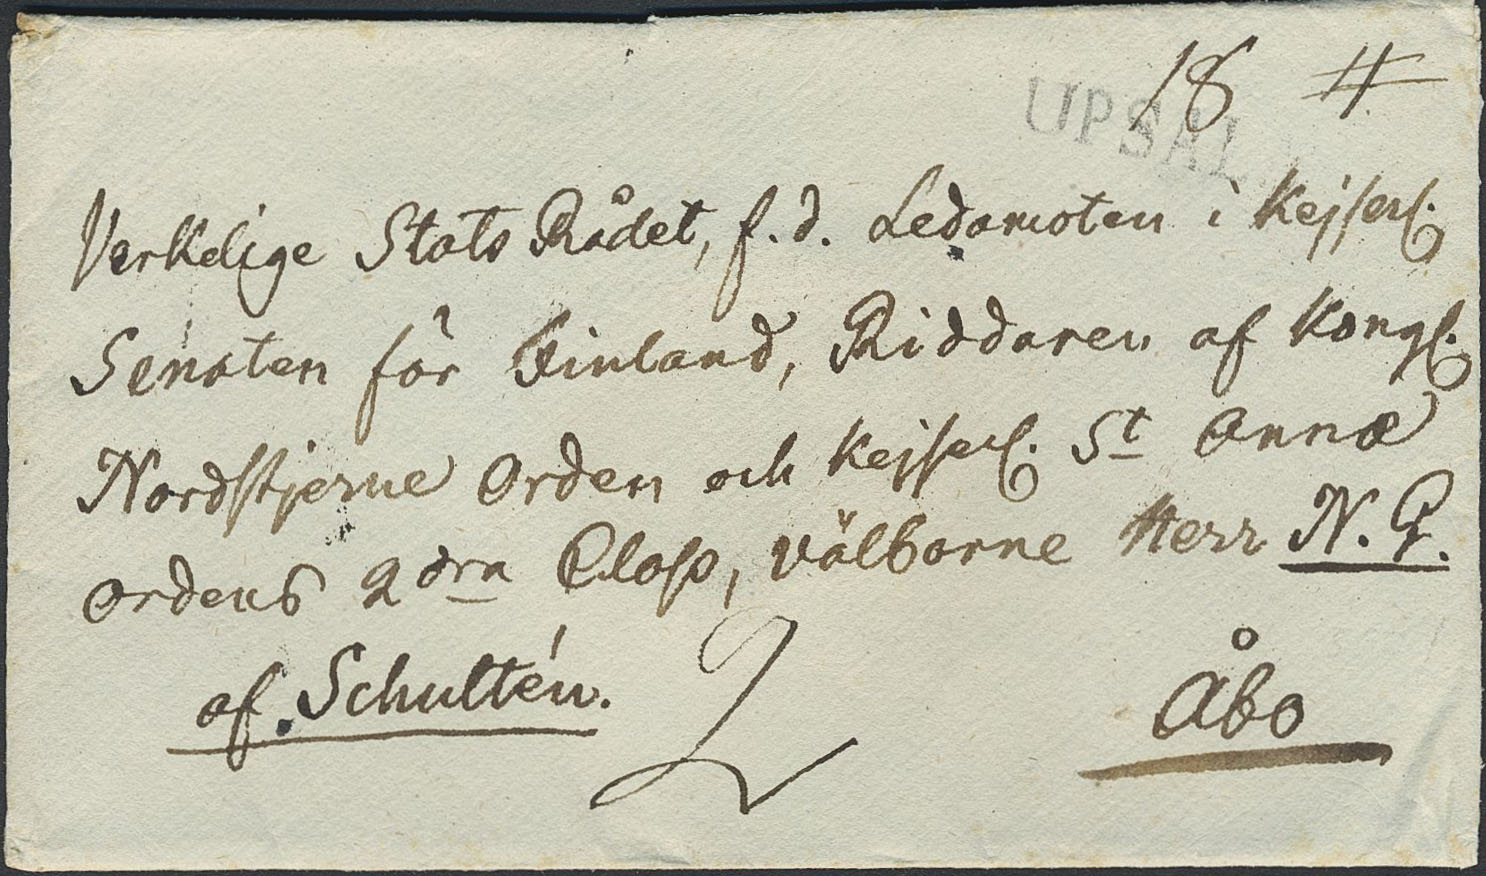 18 #
UPSAL
Verkelige Stats Rådet, f.d. Ledamoten i Kejserl.
Senaten för Finland, Riddaren af Kongl.
Nordstjerne Orden och Kejserl. St Annæ
Ordens 2dra Class, välborne Herr N. G.
af Schultén.
2
Åbo